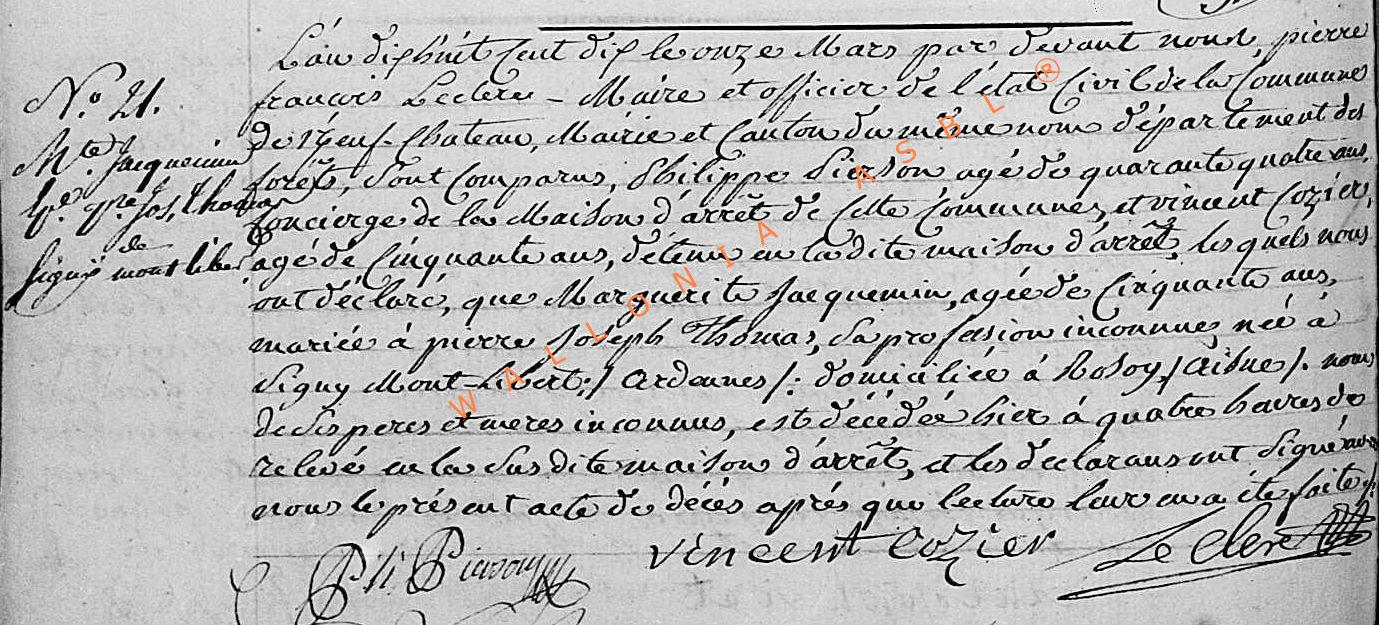 N.o 21.
M.te Jacquemin
f.e p.re Jos. Thomas
de
Signÿ mont libert
L'án dix huit cent dix le onze Mars par devant nous, pierre
françois Leclere - Maire et officier de l'état Civil de la Commune
de Neuf-Chateau, Mairie et Canton du même nom département des
forêts, sont Comparus, Philippe Pierson agé de quarante quatre ans,
Concierge de la Maison d'arrêt de Cette Commune, et vincent Cozier,
agé de Cinquante ans, détenu en la dite maison d'arrêt, les quels nous
ont déclaré, que Marguerite Jacquemin, agée de Cinquante ans,
mariée à pierre Joseph Thomas, sa profession inconnue, née à
Signy Mont-Libert :/ Ardennes /: domiciliée à Rosoy / Aisne /. noms
de ses peres et meres inconnus, est décédée hier à quatre heures de
relevé en la susdite maison d'arrêt, et les declarans ont signé avec
nous le présent acte de décès aprés que lecture leur en a été faite ./.
Ph Pierson
vincent Cozier
Le Clere
WALLONIA ASBL ®